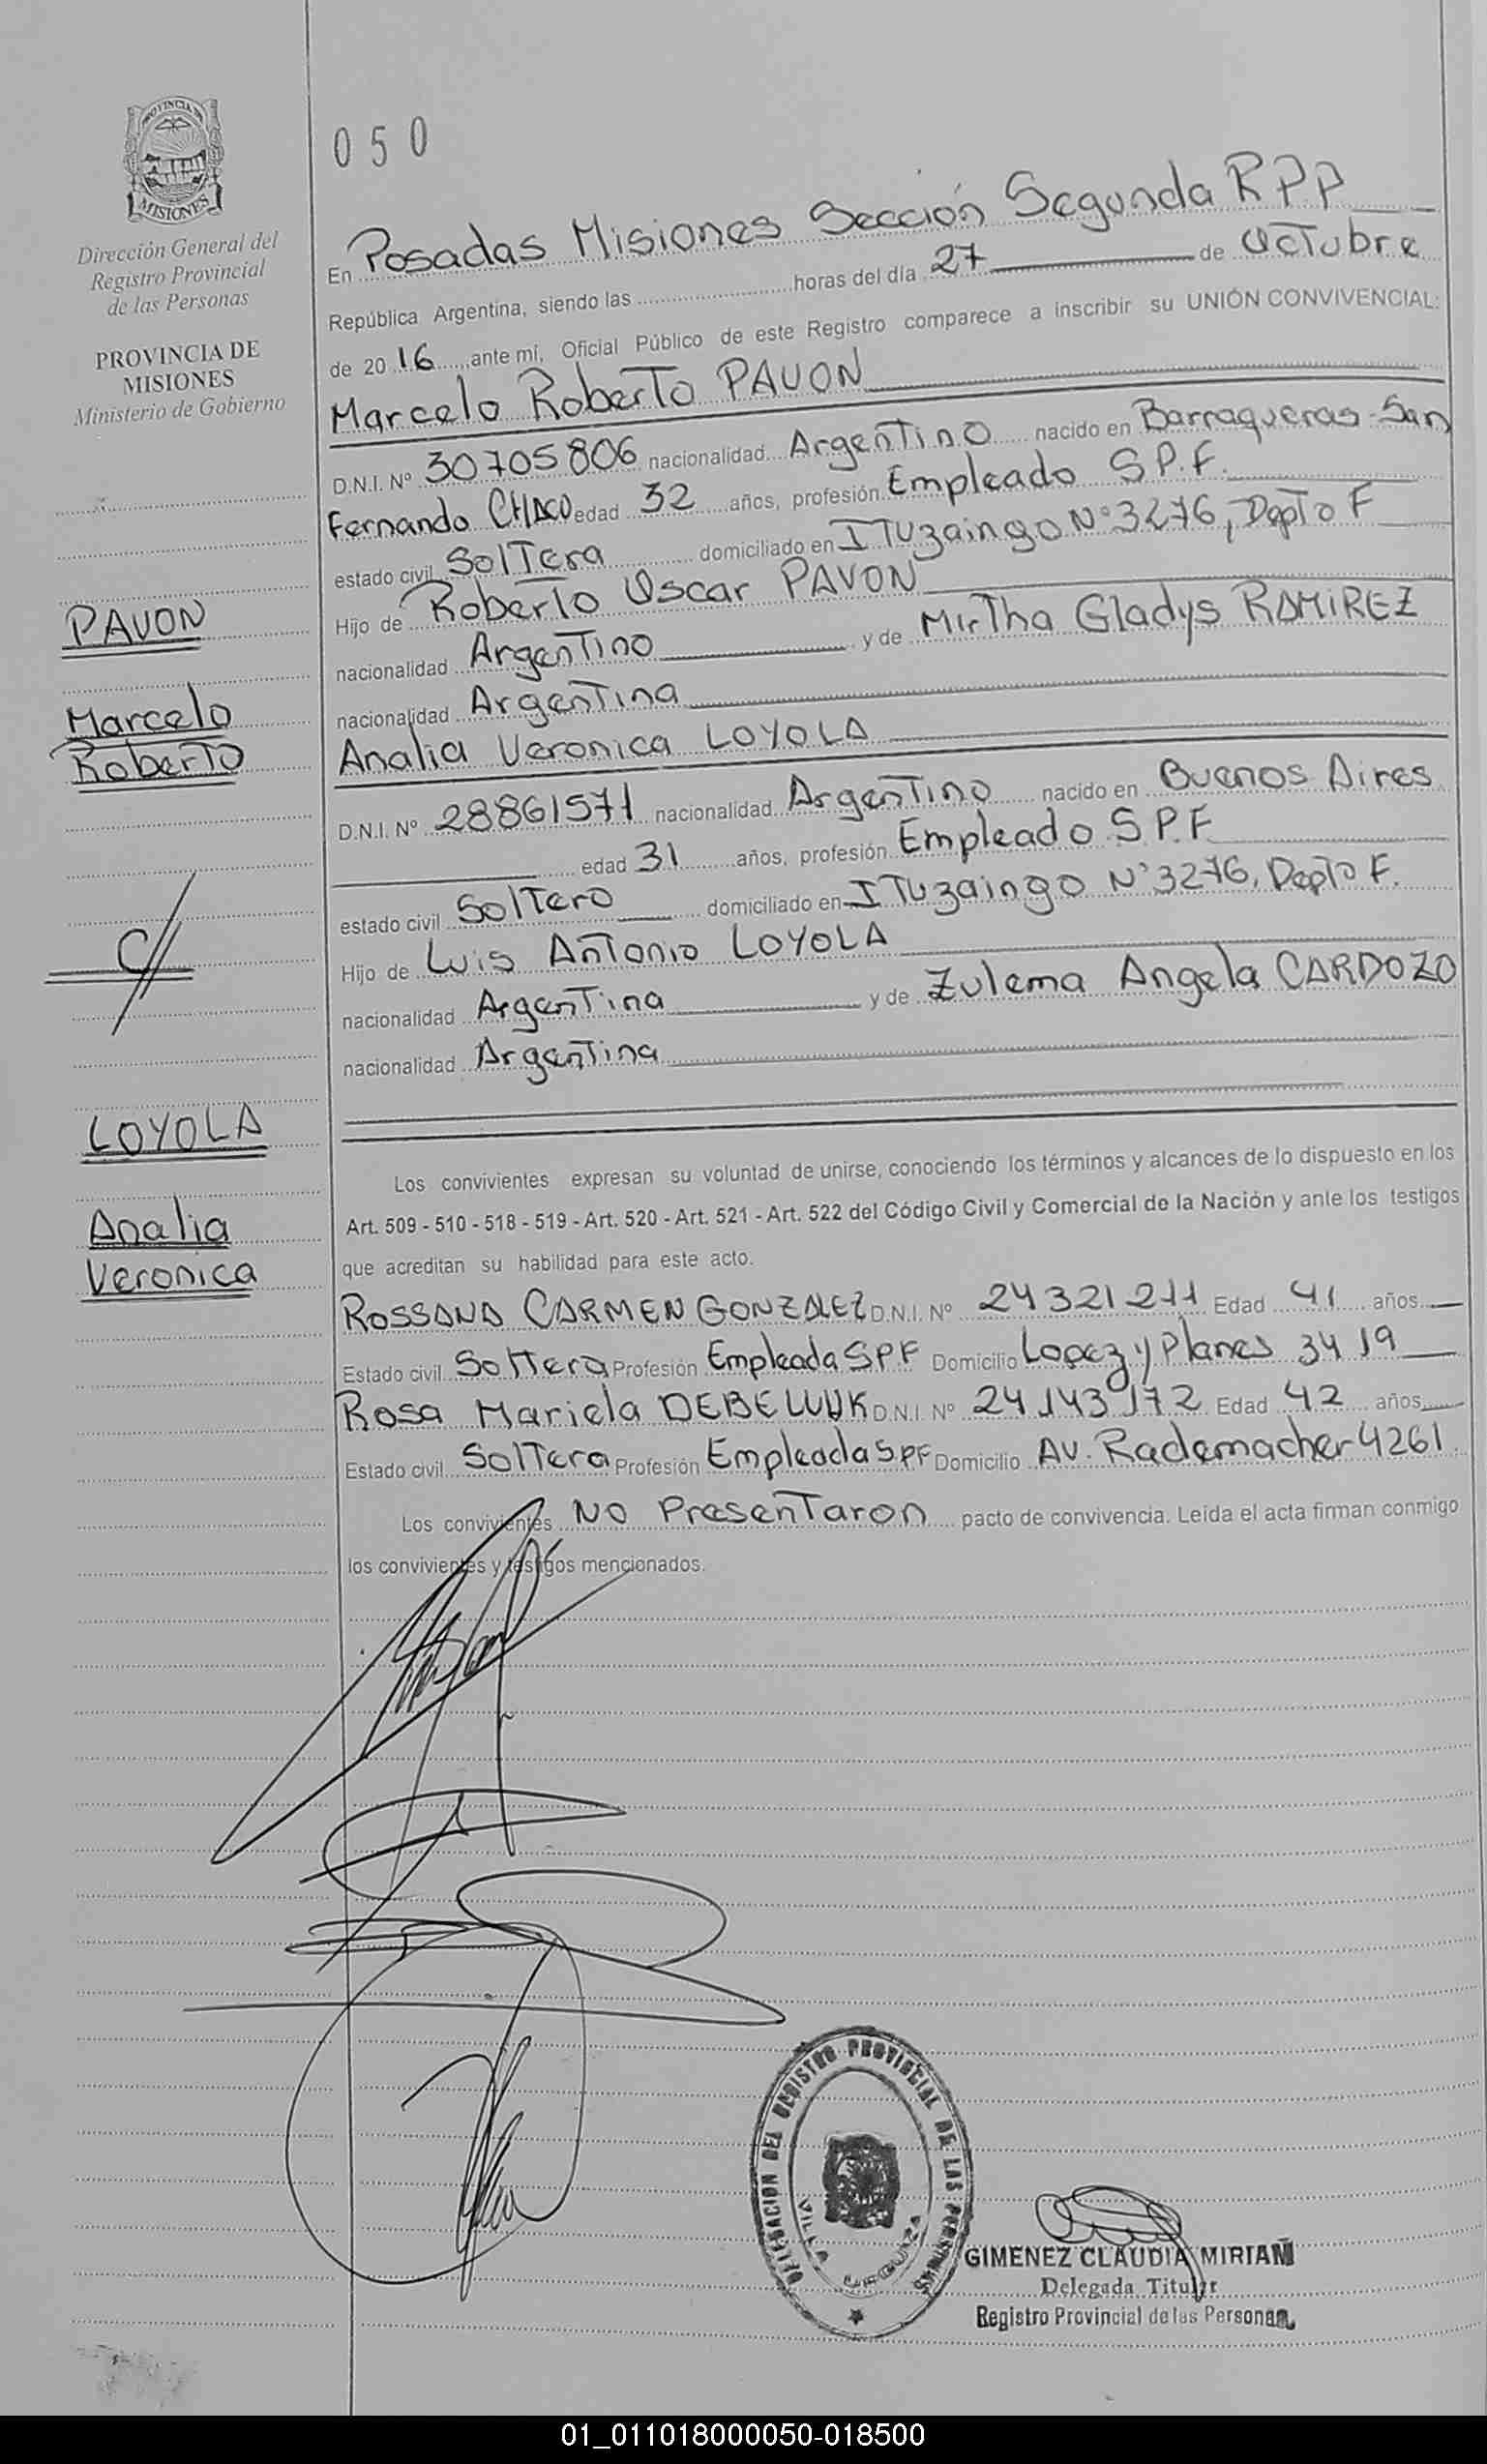 PROVINCIA DE
MISIONES
Dirección General del
Registro Provincial
de las Personas
PROVINCIA DE
MISIONES
Ministerio de Gobierno
PAVON
Marcelo
Roberto
C//
LOYOLA
Analia
Veronica
050
En Posadas Misiones Sección Segunda RPP
República Argentina, siendo las horas del día 27 de Octubre
de 2016 ante mí, Oficial Público de este Registro comparece a inscribir su UNIÓN CONVIVENCIAL:
Marcelo Roberto PAVON
D.N.I. Nº 30705806 nacionalidad Argentino nacido en Barraqueras-San
Fernando CHACO edad 32 años, profesión Empleado S.P.F.
estado civil Soltera domiciliado en ITuzaingo Nº3276, Depto F
Hijo de Roberto Oscar PAVON
nacionalidad Argentino y de Mirtha Gladys RAMIREZ
nacionalidad Argentina
Analia Veronica LOYOLA
D.N.I. Nº 28861571 nacionalidad Argentino nacido en Buenos Aires
edad 31 años, profesión Empleado S.P.F
estado civil Soltero domiciliado en ITuzaingo Nº3276, Depto F.
Hijo de Luis Antonio LOYOLA
nacionalidad Argentina y de Zulema Angela CARDOZO
nacionalidad Argentina
Los convivientes expresan su voluntad de unirse, conociendo los términos y alcances de lo dispuesto en los
Art. 509 - 510 - 518 - 519 - Art. 520 - Art. 521 - Art. 522 del Código Civil y Comercial de la Nación y ante los testigos
que acreditan su habilidad para este acto.
ROSSANA CARMEN GONZALEZ D.N.I. Nº 24321211 Edad 41 años
Estado civil Soltera Profesión Empleada SPF Domicilio Lopez y Planes 3419
Rosa Mariela DEBELUUK D.N.I. Nº 24143172 Edad 42 años
Estado civil Soltera Profesión Empleada SPF Domicilio Av. Rademacher 4261
Los convivientes No Presentaron pacto de convivencia. Leída el acta firman conmigo
los convivientes y testigos mencionados.
DELEGACION DEL REGISTRO PROVINCIAL DE LAS PERSONAS
VILLA URQUIZA
GIMENEZ CLAUDIA MIRIAM
Delegada Titular
Registro Provincial de las Personas
01_011018000050-018500